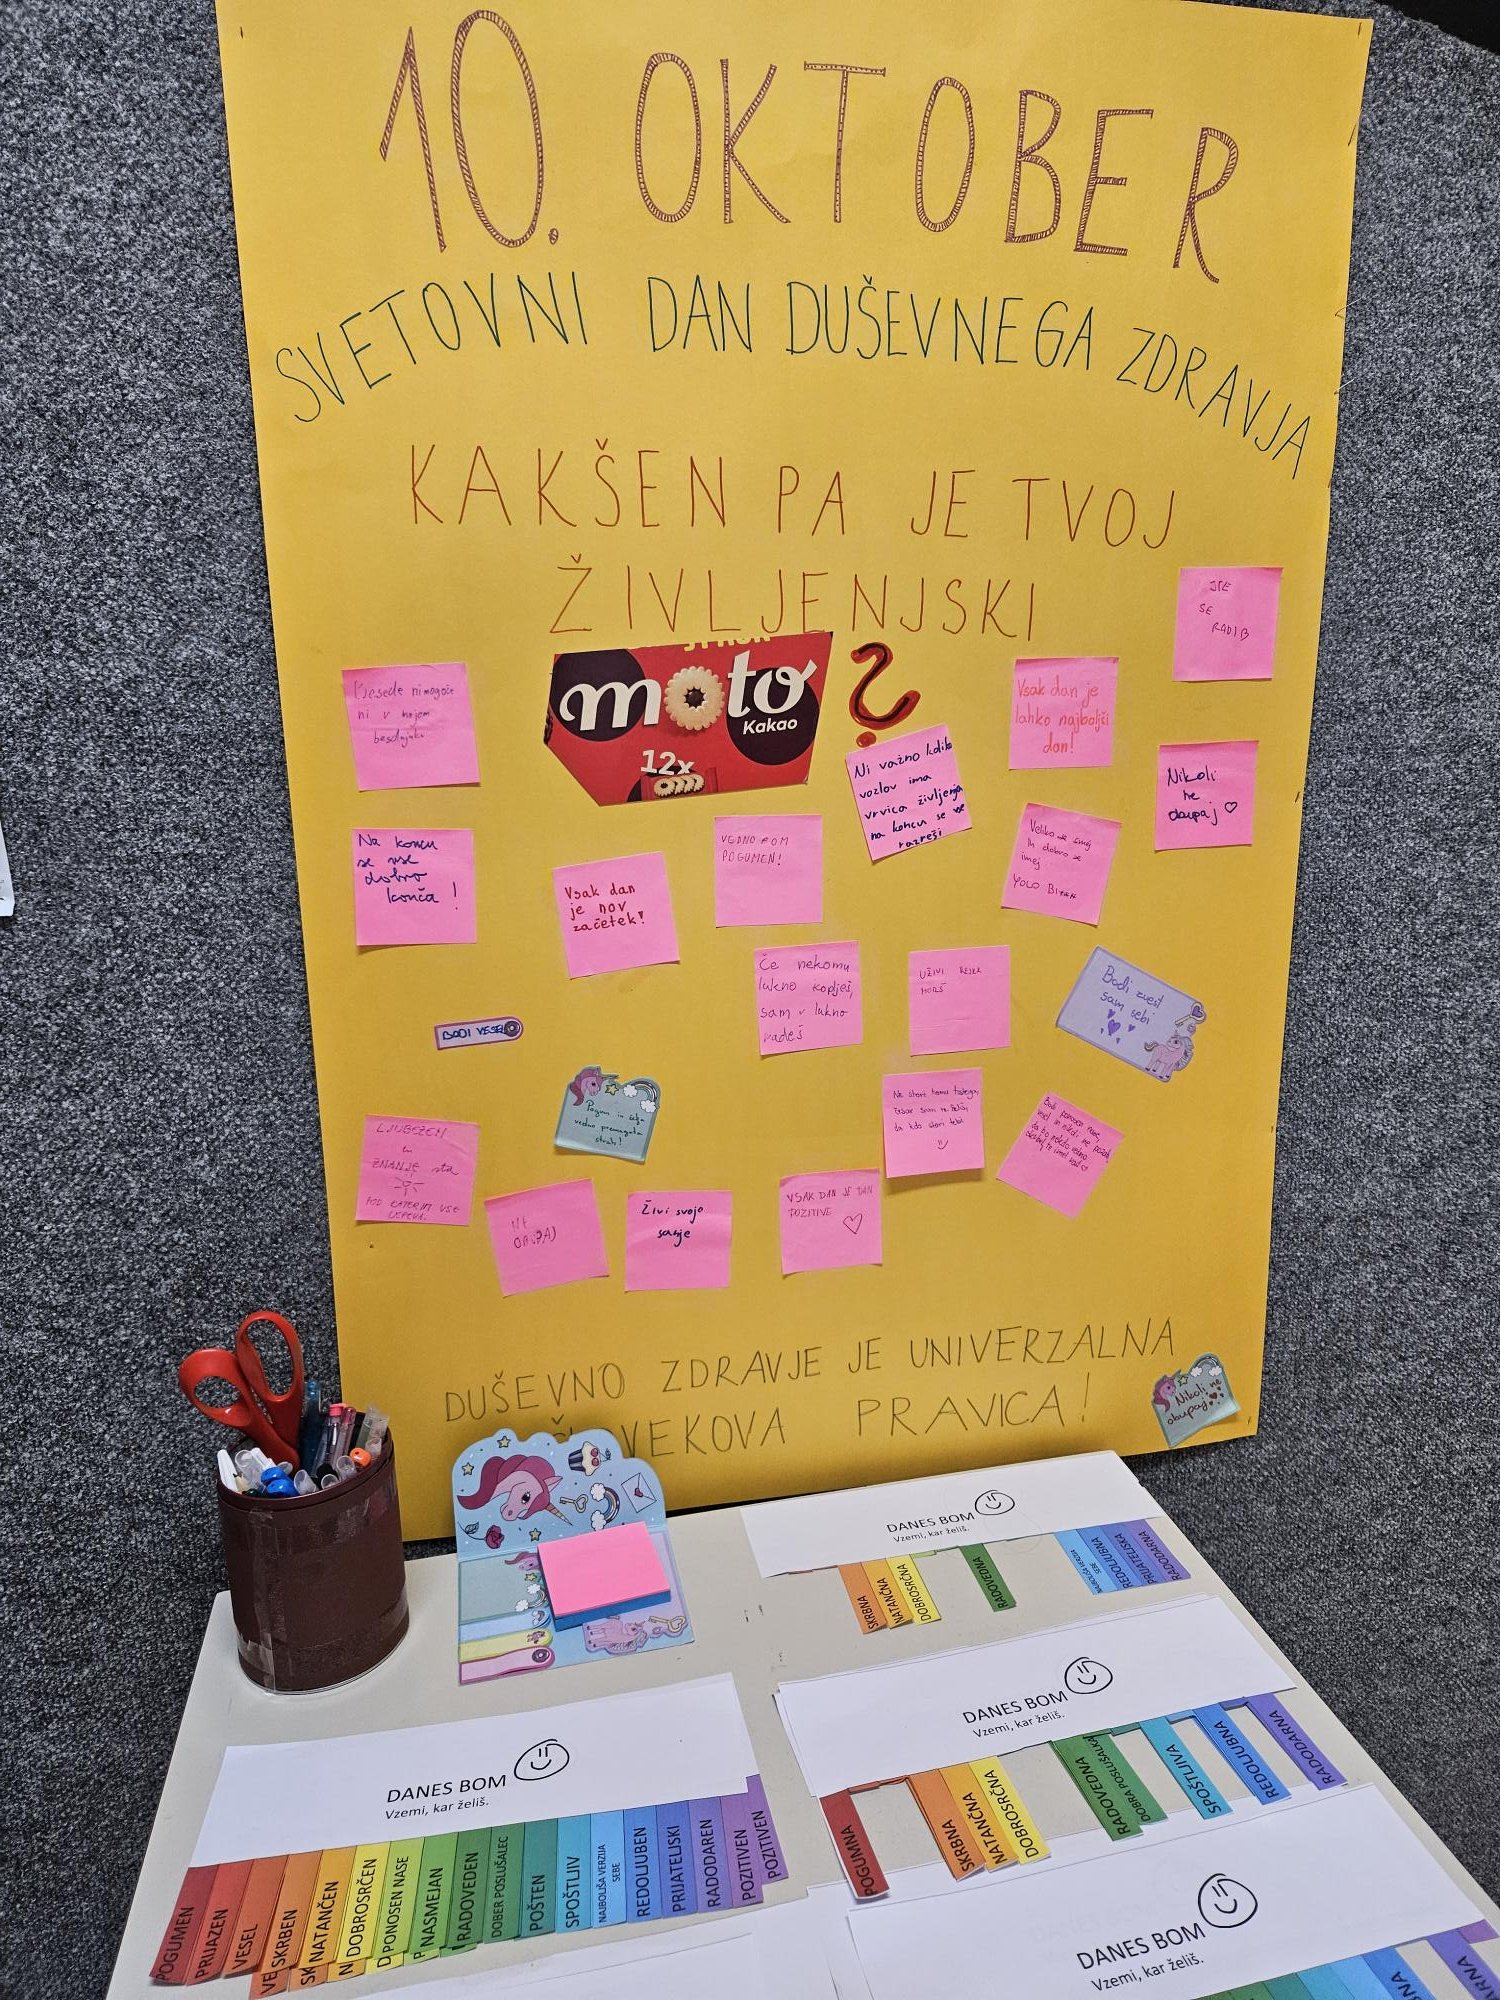 10. OKTOBER
SVETOVNI DAN DUŠEVNEGA ZDRAVJA
KAKŠEN PA JE TVOJ
ŽIVLJENJSKI
moto
Kakao
12x
?
SE
Besede nimogoče
ni v mojem
Vsak dan je
lahko najboljši
dan!
Nikoli
ne
obupaj ♡
Ni važno koliko
vozlov ima
vrvica življenja
na koncu se vse
razreši
Na koncu
se vse
dobro
konča !
Vsak dan
je nov
začetek!
VEDNO BOM
POGUMEN!
Veliko se smej
in dobro se
imej
YOLO
Če nekomu
lukno koplješ,
sam v lukno
padeš
UŽIVI
Bodi zvest
sam sebi
BODI VESEL
Pogum in želja
vedno premagata
strah!
LJUBEZEN
in
ZNANJE sta
POD KATERIM VSE
NE
OBUPAJ
Živi svoje
sanje
VSAK DAN JE DAN
POZITIVE ♡
Ne stori komu tistega,
česar sam ne želiš,
da kdo stori tebi
DUŠEVNO ZDRAVJE JE UNIVERZALNA
ČLOVEKOVA PRAVICA!
Nikoli ne
obupaj
DANES BOM
Vzemi, kar želiš.
SKRBNA
NATANČNA
DOBROSRČNA
RADOVEDNA
NAJBOLJŠA VERZIJA
SEBE
REDOLJUBNA
PRIJATELJSKA
RADODARNA
DANES BOM
Vzemi, kar želiš.
POGUMNA
SKRBNA
NATANČNA
DOBROSRČNA
RADOVEDNA
DOBRA POSLUŠALKA
SPOŠTLJIVA
REDOLJUBNA
RADODARNA
DANES BOM
Vzemi, kar želiš.
POGUMEN
PRIJAZEN
VESEL
VE
SKRBEN
SK
NATANČEN
N
DOBROSRČEN
D
PONOSEN NASE
P
NASMEJAN
RADOVEDEN
DOBER POSLUŠALEC
POŠTEN
SPOŠTLJIV
NAJBOLJŠA VERZIJA
SEBE
REDOLJUBEN
PRIJATELJSKI
RADODAREN
POZITIVEN
POZITIVEN
DANES BOM
Vzemi, kar želiš.
BNA
ARNA